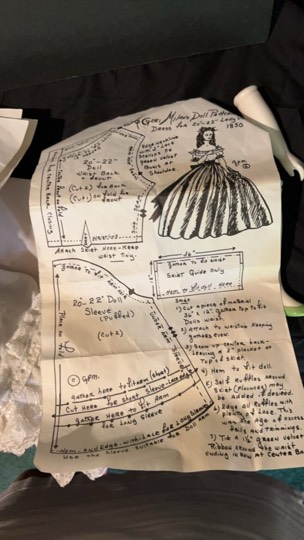 Doll Pattern
Dress for 20"-22" Lady in
1850
Edge neckline
with 2" lace
green velvet
bows at
shoulder.
gpm.
20"-22"
Doll
Waist Back
Front
(Cut 2) for Back
(Cut 1) on fold for
front
Attach Skirt Here-Keep
waist tiny.
36"
gather to fit waist
Skirt Guide Only
Hem to fit doll
20"-22" Doll
Sleeve
(Puffed)
(Cut 2)
Place on fold
gpm.
gather here to fit arm (short)
Cut here for short sleeve
gather Here to fit Arm
for Long Sleeve
Hem and Edge with Lace for Long Sleeve
Use the Sleeve suitable for Doll Arm
Skirt
1) Cut a piece of material
36" x 12". Gather top to fit
Doll's Waist.
2) Attach to waist keeping
gathers even.
3) Sew up center back-
leaving a 2" placket at
Top of skirt
4) Hem to fit doll.
5) Self Ruffles around
skirt (Flounces) may
be added if desired.
6) Edge all ruffles with
lace. This
was the age of excess
frills and trimmings.
7) Tie a 1½" green velvet
Ribbon around the waist
ending in Bow at Center Back